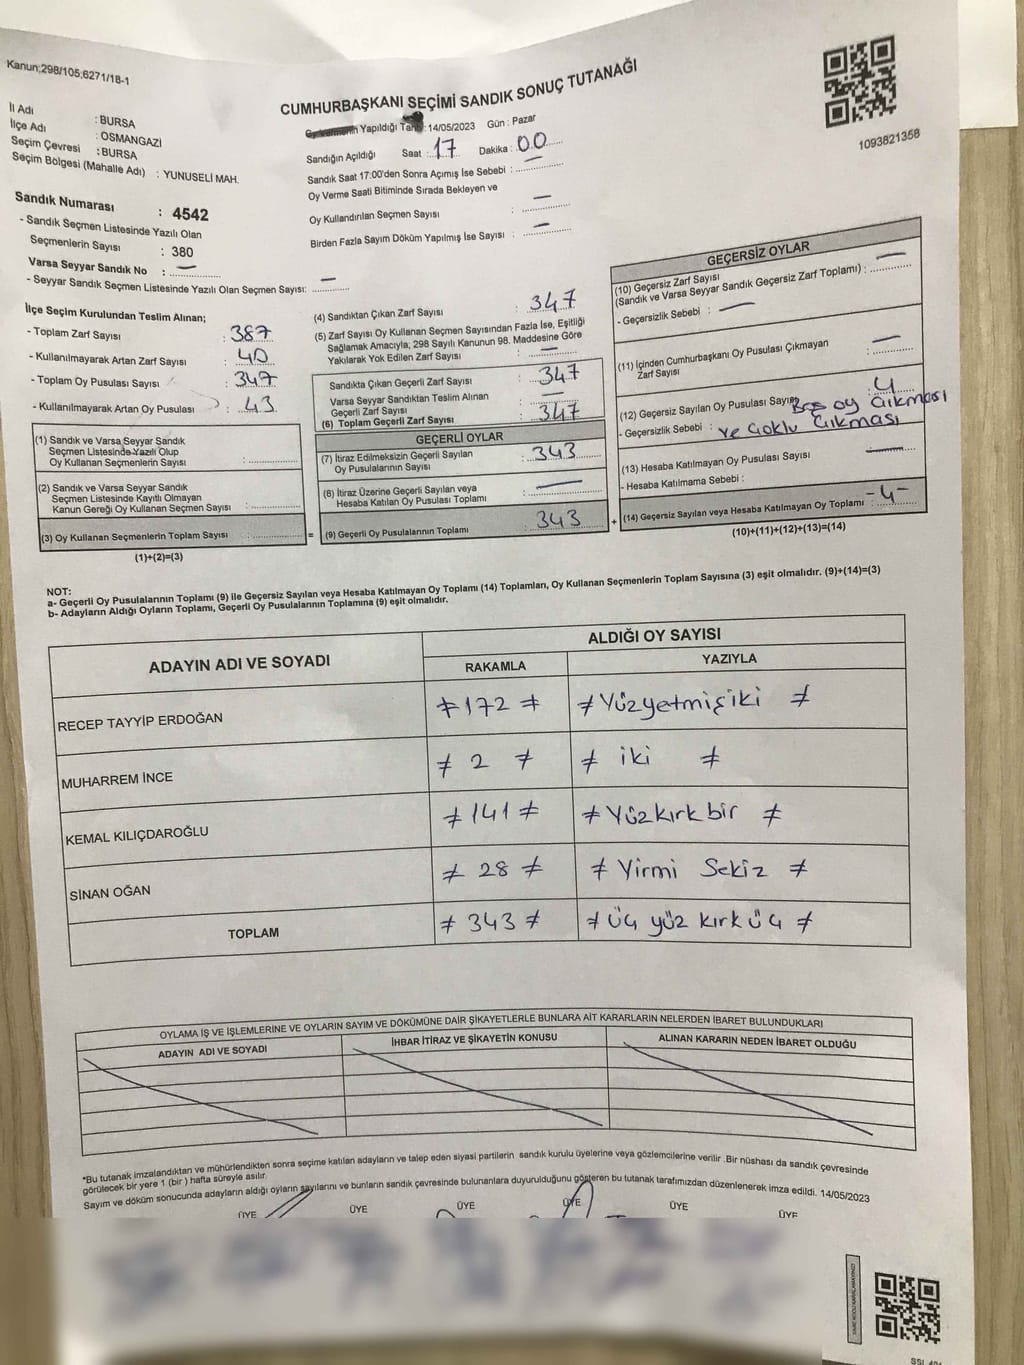 Kanun;298/105,6271/18-1
CUMHURBAŞKANI SEÇİMİ SANDIK SONUÇ TUTANAĞI
1093821358
İl Adı : BURSA
İlçe Adı : OSMANGAZİ
Seçim Çevresi : BURSA
Seçim Bölgesi (Mahalle Adı) : YUNUSELİ MAH.
Yapıldığı Tarih : 14/05/2023 Gün : Pazar
Sandığın Açıldığı Saat : 17 Dakika : 00
Sandık Saat 17:00'den Sonra Açımış İse Sebebi : —
Oy Verme Saati Bitiminde Sırada Bekleyen ve
Oy Kullandırılan Seçmen Sayısı : —
Birden Fazla Sayım Döküm Yapılmış İse Sayısı : —
Sandık Numarası : 4542
- Sandık Seçmen Listesinde Yazılı Olan
Seçmenlerin Sayısı : 380
Varsa Seyyar Sandık No : —
- Seyyar Sandık Seçmen Listesinde Yazılı Olan Seçmen Sayısı: —
İlçe Seçim Kurulundan Teslim Alınan;
- Toplam Zarf Sayısı : 387
- Kullanılmayarak Artan Zarf Sayısı : 40
- Toplam Oy Pusulası Sayısı : 347
- Kullanılmayarak Artan Oy Pusulası : 43
(1) Sandık ve Varsa Seyyar Sandık
Seçmen Listesinde Yazılı Olup
Oy Kullanan Seçmenlerin Sayısı :
(2) Sandık ve Varsa Seyyar Sandık
Seçmen Listesinde Kayıtlı Olmayan
Kanun Gereği Oy Kullanan Seçmen Sayısı :
(3) Oy Kullanan Seçmenlerin Toplam Sayısı :
(1)+(2)=(3)
=
(4) Sandıktan Çıkan Zarf Sayısı : 347
(5) Zarf Sayısı Oy Kullanan Seçmen Sayısından Fazla İse, Eşitliği
Sağlamak Amacıyla, 298 Sayılı Kanunun 98. Maddesine Göre
Yakılarak Yok Edilen Zarf Sayısı : —
Sandıkta Çıkan Geçerli Zarf Sayısı : 347
Varsa Seyyar Sandıktan Teslim Alınan
Geçerli Zarf Sayısı : —
(6) Toplam Geçerli Zarf Sayısı : 347
GEÇERLİ OYLAR
(7) İtiraz Edilmeksizin Geçerli Sayılan
Oy Pusulalarının Sayısı : 343
(8) İtiraz Üzerine Geçerli Sayılan veya
Hesaba Katılan Oy Pusulası Toplamı : —
(9) Geçerli Oy Pusulalarının Toplamı : 343
+
GEÇERSİZ OYLAR
(10) Geçersiz Zarf Sayısı
(Sandık ve Varsa Seyyar Sandık Geçersiz Zarf Toplamı) : —
- Geçersizlik Sebebi : —
(11) İçinden Cumhurbaşkanı Oy Pusulası Çıkmayan
Zarf Sayısı : —
(12) Geçersiz Sayılan Oy Pusulası Sayısı : 4
- Geçersizlik Sebebi : Boş oy çıkması
ve çoklu çıkması
(13) Hesaba Katılmayan Oy Pusulası Sayısı : —
- Hesaba Katılmama Sebebi :
(14) Geçersiz Sayılan veya Hesaba Katılmayan Oy Toplamı : -4-
(10)+(11)+(12)+(13)=(14)
NOT:
a- Geçerli Oy Pusulalarının Toplamı (9) ile Geçersiz Sayılan veya Hesaba Katılmayan Oy Toplamı (14) Toplamları, Oy Kullanan Seçmenlerin Toplam Sayısına (3) eşit olmalıdır. (9)+(14)=(3)
b- Adayların Aldığı Oyların Toplamı, Geçerli Oy Pusulalarının Toplamına (9) eşit olmalıdır.
ADAYIN ADI VE SOYADI
ALDIĞI OY SAYISI
RAKAMLA YAZIYLA
RECEP TAYYİP ERDOĞAN ≠ 172 ≠ ≠ Yüzyetmişiki ≠
MUHARREM İNCE ≠ 2 ≠ ≠ iki ≠
KEMAL KILIÇDAROĞLU ≠ 141 ≠ ≠ Yüzkırkbir ≠
SİNAN OĞAN ≠ 28 ≠ ≠ Yirmi Sekiz ≠
TOPLAM ≠ 343 ≠ ≠ Üç yüz kırk üç ≠
OYLAMA İŞ VE İŞLEMLERİNE VE OYLARIN SAYIM VE DÖKÜMÜNE DAİR ŞİKAYETLERLE BUNLARA AİT KARARLARIN NELERDEN İBARET BULUNDUKLARI
ADAYIN ADI VE SOYADI İHBAR İTİRAZ VE ŞİKAYETİN KONUSU ALINAN KARARIN NEDEN İBARET OLDUĞU
*Bu tutanak imzalandıktan ve mühürlendikten sonra seçime katılan adayların ve talep eden siyasi partilerin sandık kurulu üyelerine veya gözlemcilerine verilir .Bir nüshası da sandık çevresinde
görülecek bir yere 1 (bir ) hafta süreyle asılır.
Sayım ve döküm sonucunda adayların aldığı oyların sayılarını ve bunların sandık çevresinde bulunanlara duyurulduğunu gösteren bu tutanak tarafımızdan düzenlenerek imza edildi. 14/05/2023
ÜYE ÜYE ÜYE ÜYE ÜYE ÜYE